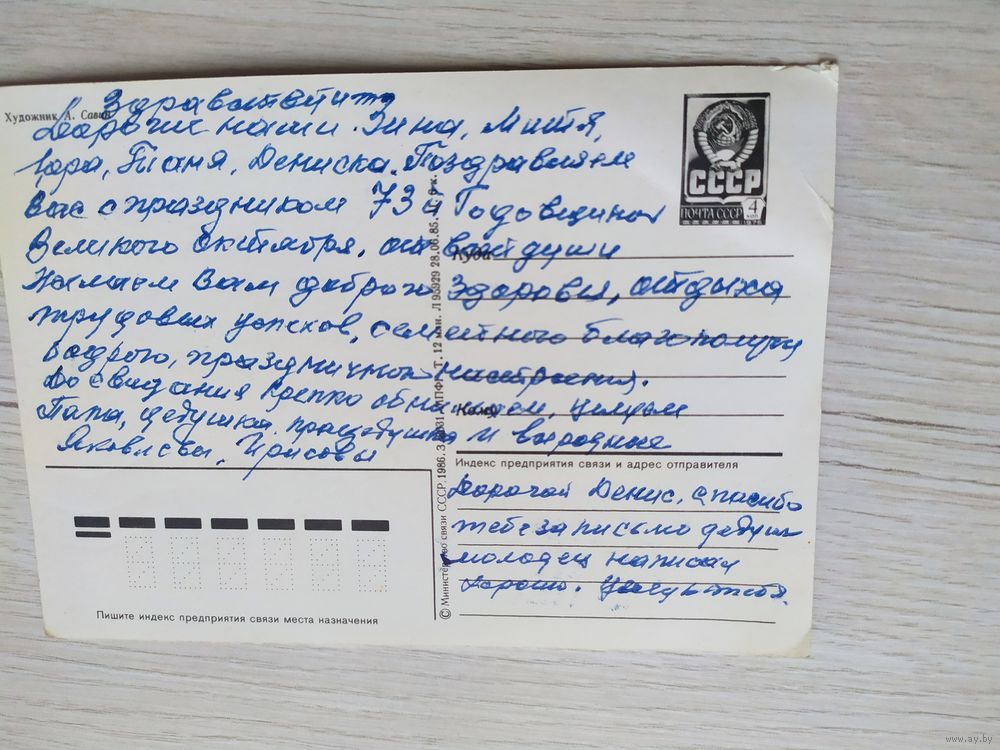 Художник А. Савин
Здравствуйте
Дорогие наши Зина, Митя,
Юра, Таня, Дениска. Поздравляем
Вас с праздником 73 Годовщиной
Великого Октября, от всей души
Желаем Вам доброго Здоровья, отдыха
трудовых успехов, семейного благополучия
бодрого, праздничного настроения.
До свидания Крепко обнимаем, целуем
Папа, дедушка, прадедушка и
Яковлевы, Ирисовы
СССР
ПОЧТА СССР
4
Куда
Кому
Индекс предприятия связи и адрес отправителя
Дорогой Денис, спасибо
тебе за письмо
молодец написал
хорошо. Целую тебя.
© Министерство связи СССР. 1986. Л 95929 28.06.85.
Пишите индекс предприятия связи места назначения
www.ay.by